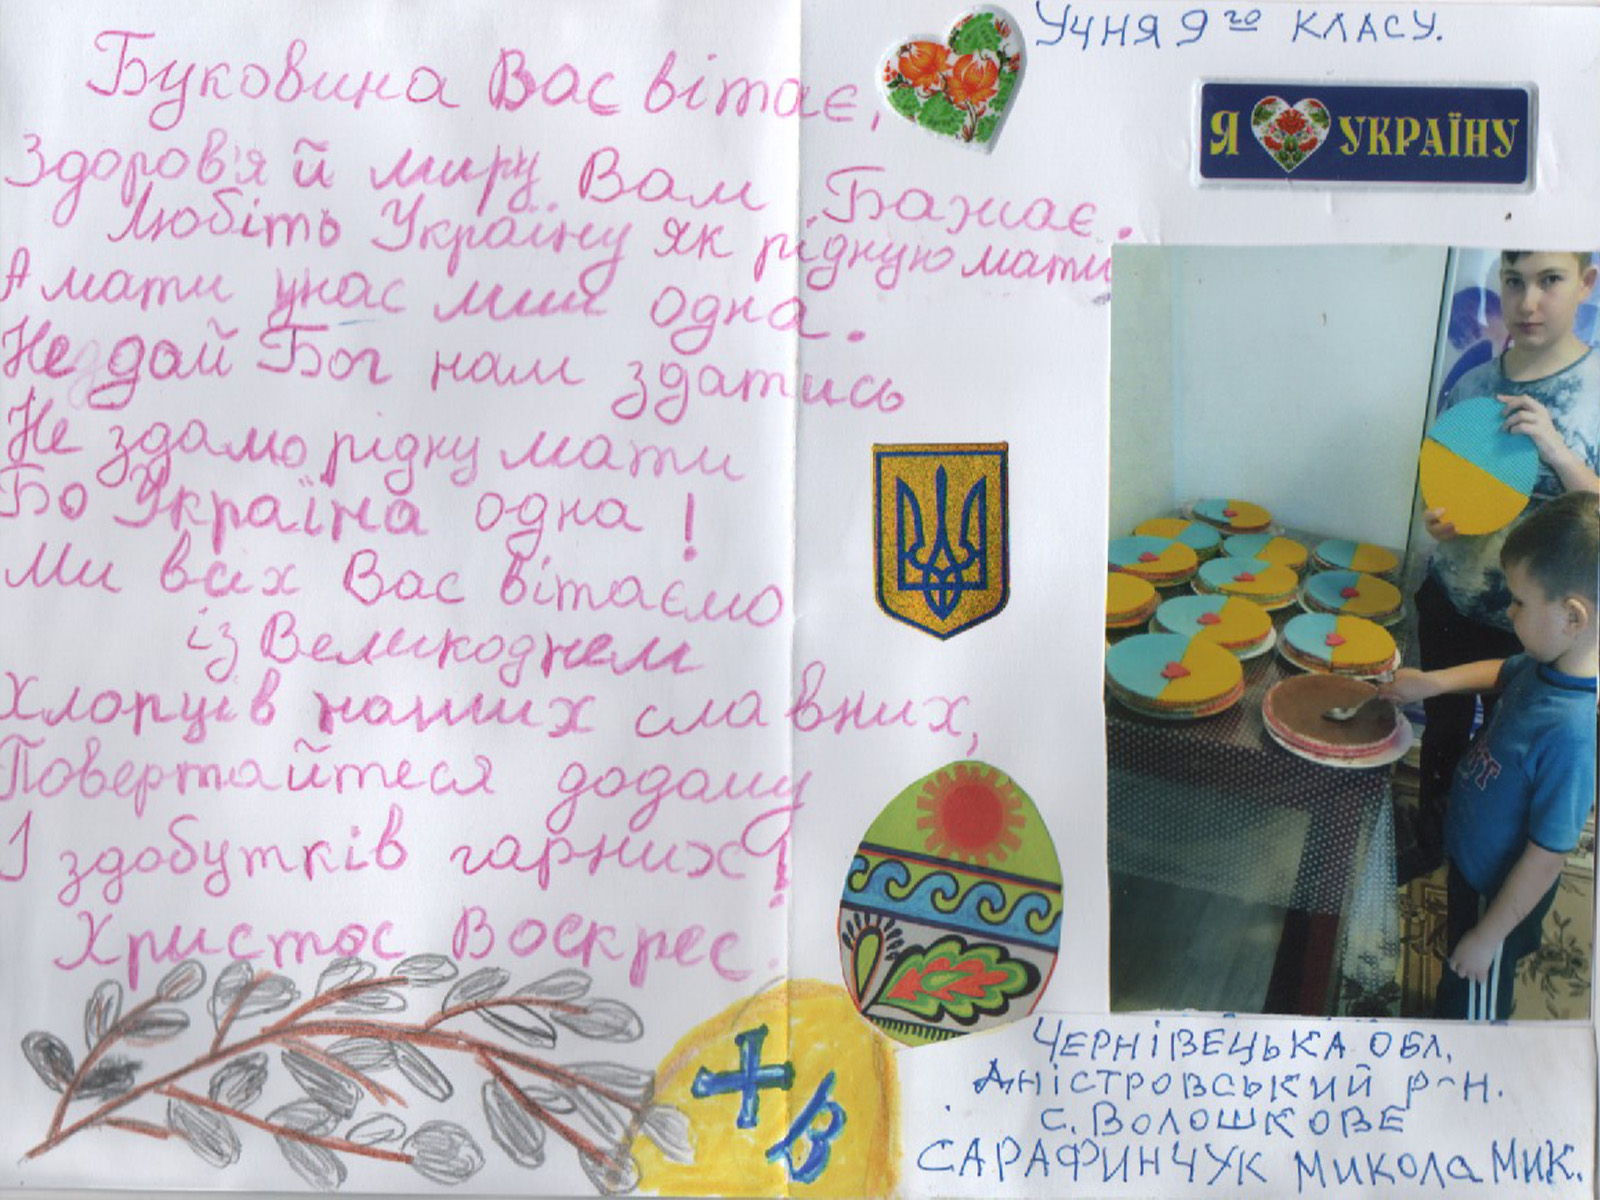 Буковина Вас вітає,
Здоров'я й миру Вам Бажає.
Любіть Україну як рідную мати
А мати унас лиш одна.
Не дай Бог нам здатись
Не здамо рідну мати
Бо Україна одна!
Ми всіх Вас вітаємо
із Великоднем
Хлопців наших славних,
Повертайтеся додому
І здобутків гарних!
Христос Воскрес.
+ В
Учня 9го класу.
Я УКРАЇНУ
Чернівецька обл.
Дністровський р-н.
с. Волошкове
Сарафинчук Микола Мик.